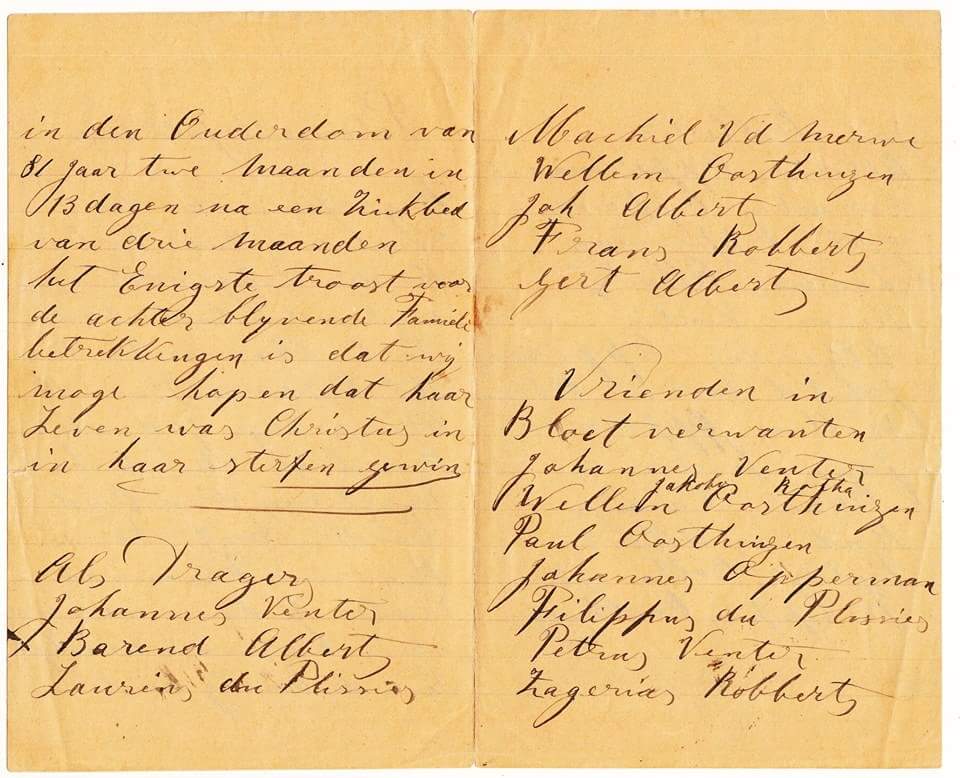 in den Ouderdom van
81 Jaar twe Maanden in
13 dagen na een Ziekbed
van drie Maanden
het Enigste troost voor
de achter blyvende Famiele
betrekkengen is dat wy
moge hopen dat haar
Leven was Christus in
in haar sterfen gewin
Als Dragers
Johannes Venter
X Barend Alberts
Lourins du Plissies
Machiel Vd Merwe
Wellem Oosthuizen
Joh Alberts
Frans Robberts
Gert Alberts
Vrienden in
Bloet verwanten
Johannes Venter
Jakobus Botha
Wellem Oosthuizen
Paul Oosthuizen
Johannes Opperman
Filippus du Plissies
Petrus Venter
Zagerias Robberts